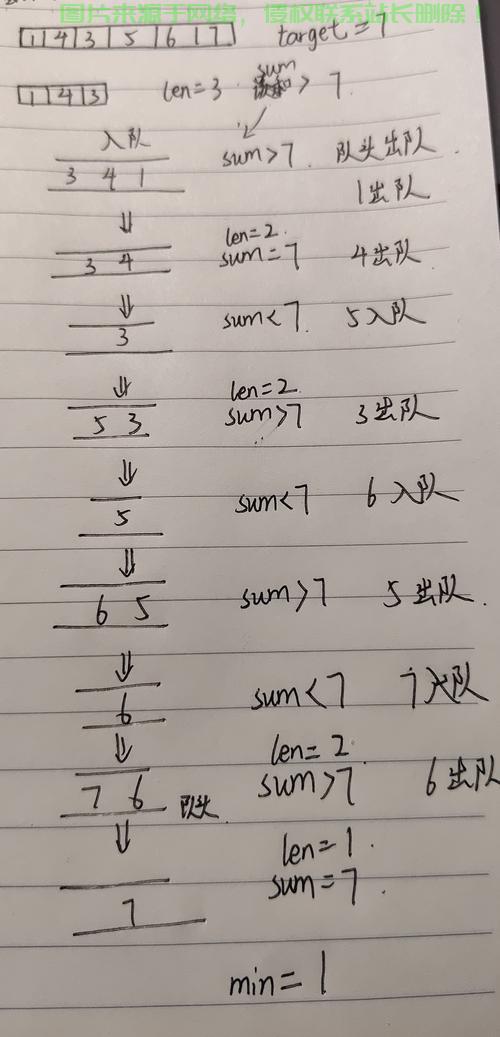 图片来源于网络，侵权联系站长删除！
1 4 3 5 6 7 target = 7
1 4 3 len=3 sum > 7
入队 sum>7 队头出队
3 4 1 1出队
len=2
3 4 sum=7 4出队
3 sum<7 5入队
len=2
5 3 sum>7 3出队
5 sum<7 6入队
6 5 sum>7 5出队
6 sum<7 7入队
len=2
7 6 队头 sum>7 6出队
len=1
7 sum=7
min=1